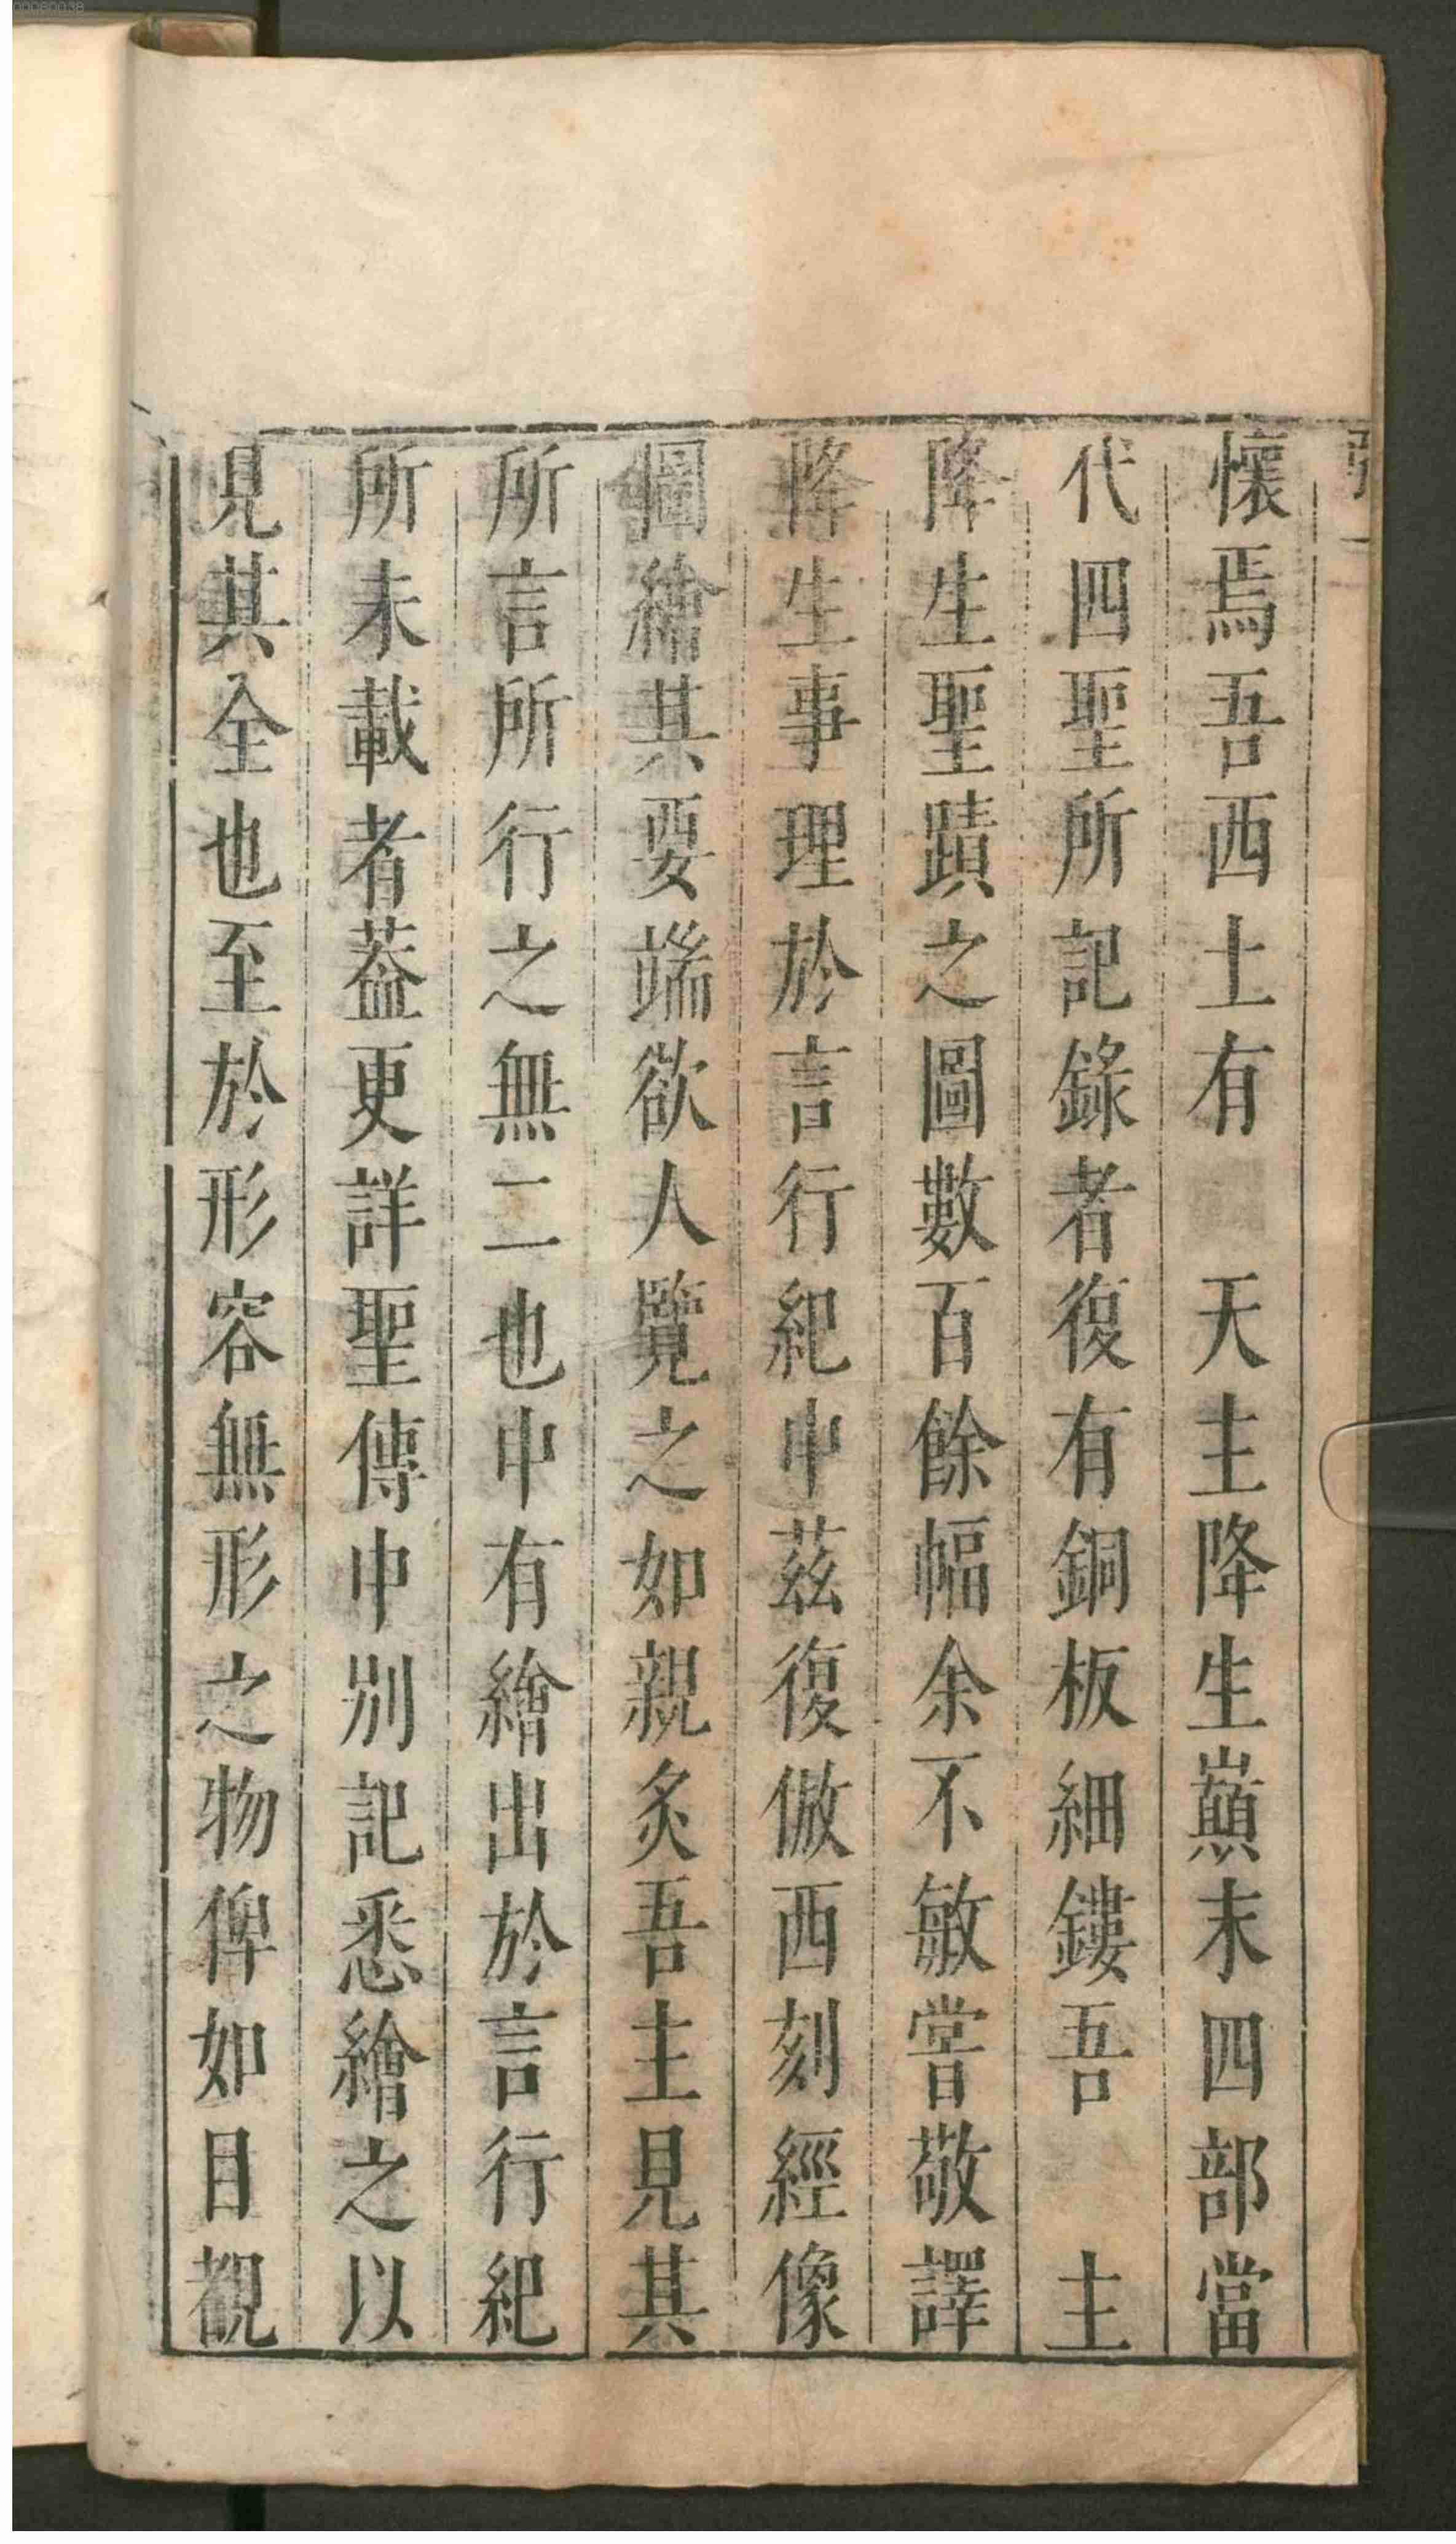 懷焉吾西土有　天主降生巔末四部當
代四聖所記錄者復有銅板細鏤吾　主
降生聖蹟之圖數百餘幅余不敏嘗敬譯
降生事理於言行紀中茲復倣西刻經像
圖繪其要端欲人覽之如親炙吾主見其
所言所行之無二也中有繪出於言行紀
所未載者葢更詳聖傳中別記悉繪之以
見其全也至於形容無形之物俾如目覩
00080038